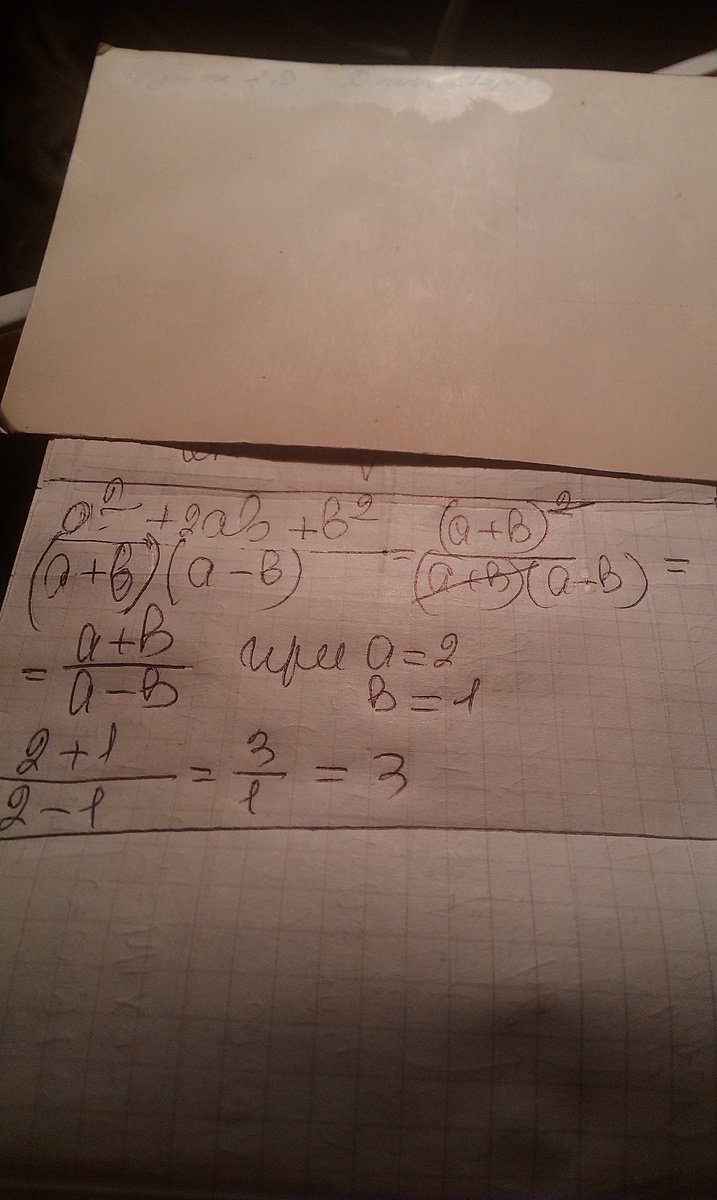 a² + 2ab + b²
(a + b)(a - b)
=
(a + b)²
(a + b)(a - b)
=
= a + b
a - b
при a = 2
b = 1
2 + 1
2 - 1
= 3
1
= 3